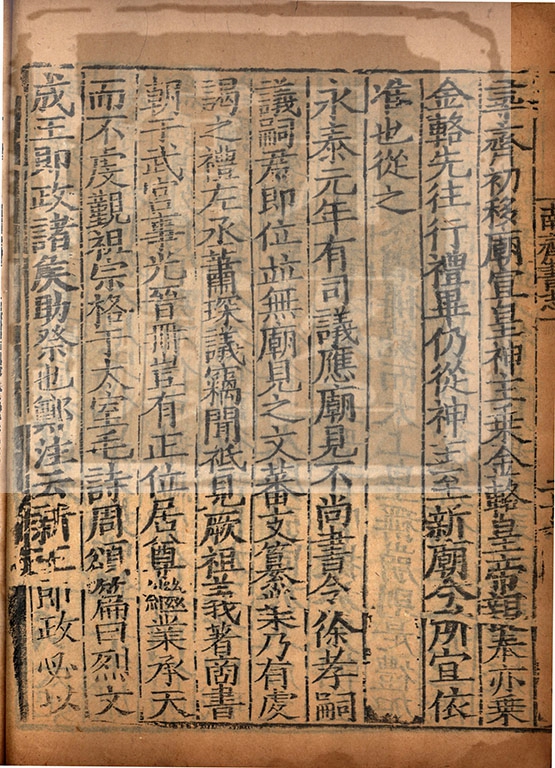 皇齊初移廟宣皇神主乘金輅皇帝親奉亦乘
金輅先往行禮畢仍從神主至新廟今所宜依
准也從之
永泰元年有司議應廟見不尚書令徐孝嗣
議嗣君即位並無廟見之文蕃支纂業乃有虔
謁之禮左丞蕭琛議竊聞祗見厥祖義著商書
朝于武宮事光晉冊豈有正位居尊繼業承天
而不虔覲祖宗格于太室毛詩周頌篇曰烈文
成王即政諸矦助祭也鄭注云新王即政必以